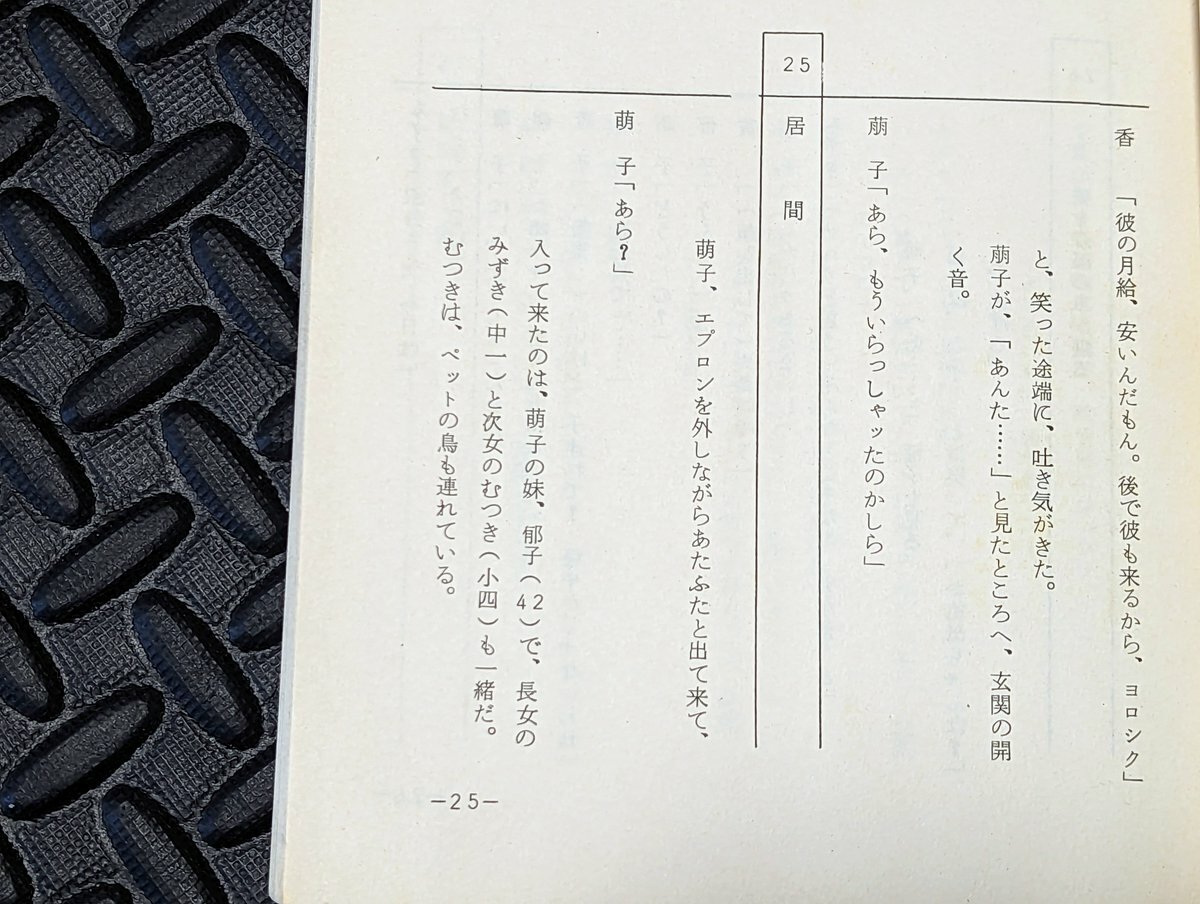 香　「彼の月給、安いんだもん。後で彼も来るから、ヨロシク」
と、笑った途端に、吐き気がきた。
萠子が、「あんた……」と見たところへ、玄関の開
く音。
萠　子「あら、もういらっしゃッたのかしら」
25　居　間
萌子、エプロンを外しながらあたふたと出て来て、
萌　子「あら？」
入って来たのは、萌子の妹、郁子（42）で、長女の
みずき（中一）と次女のむつき（小四）も一緒だ。
むつきは、ペットの鳥も連れている。
—25—